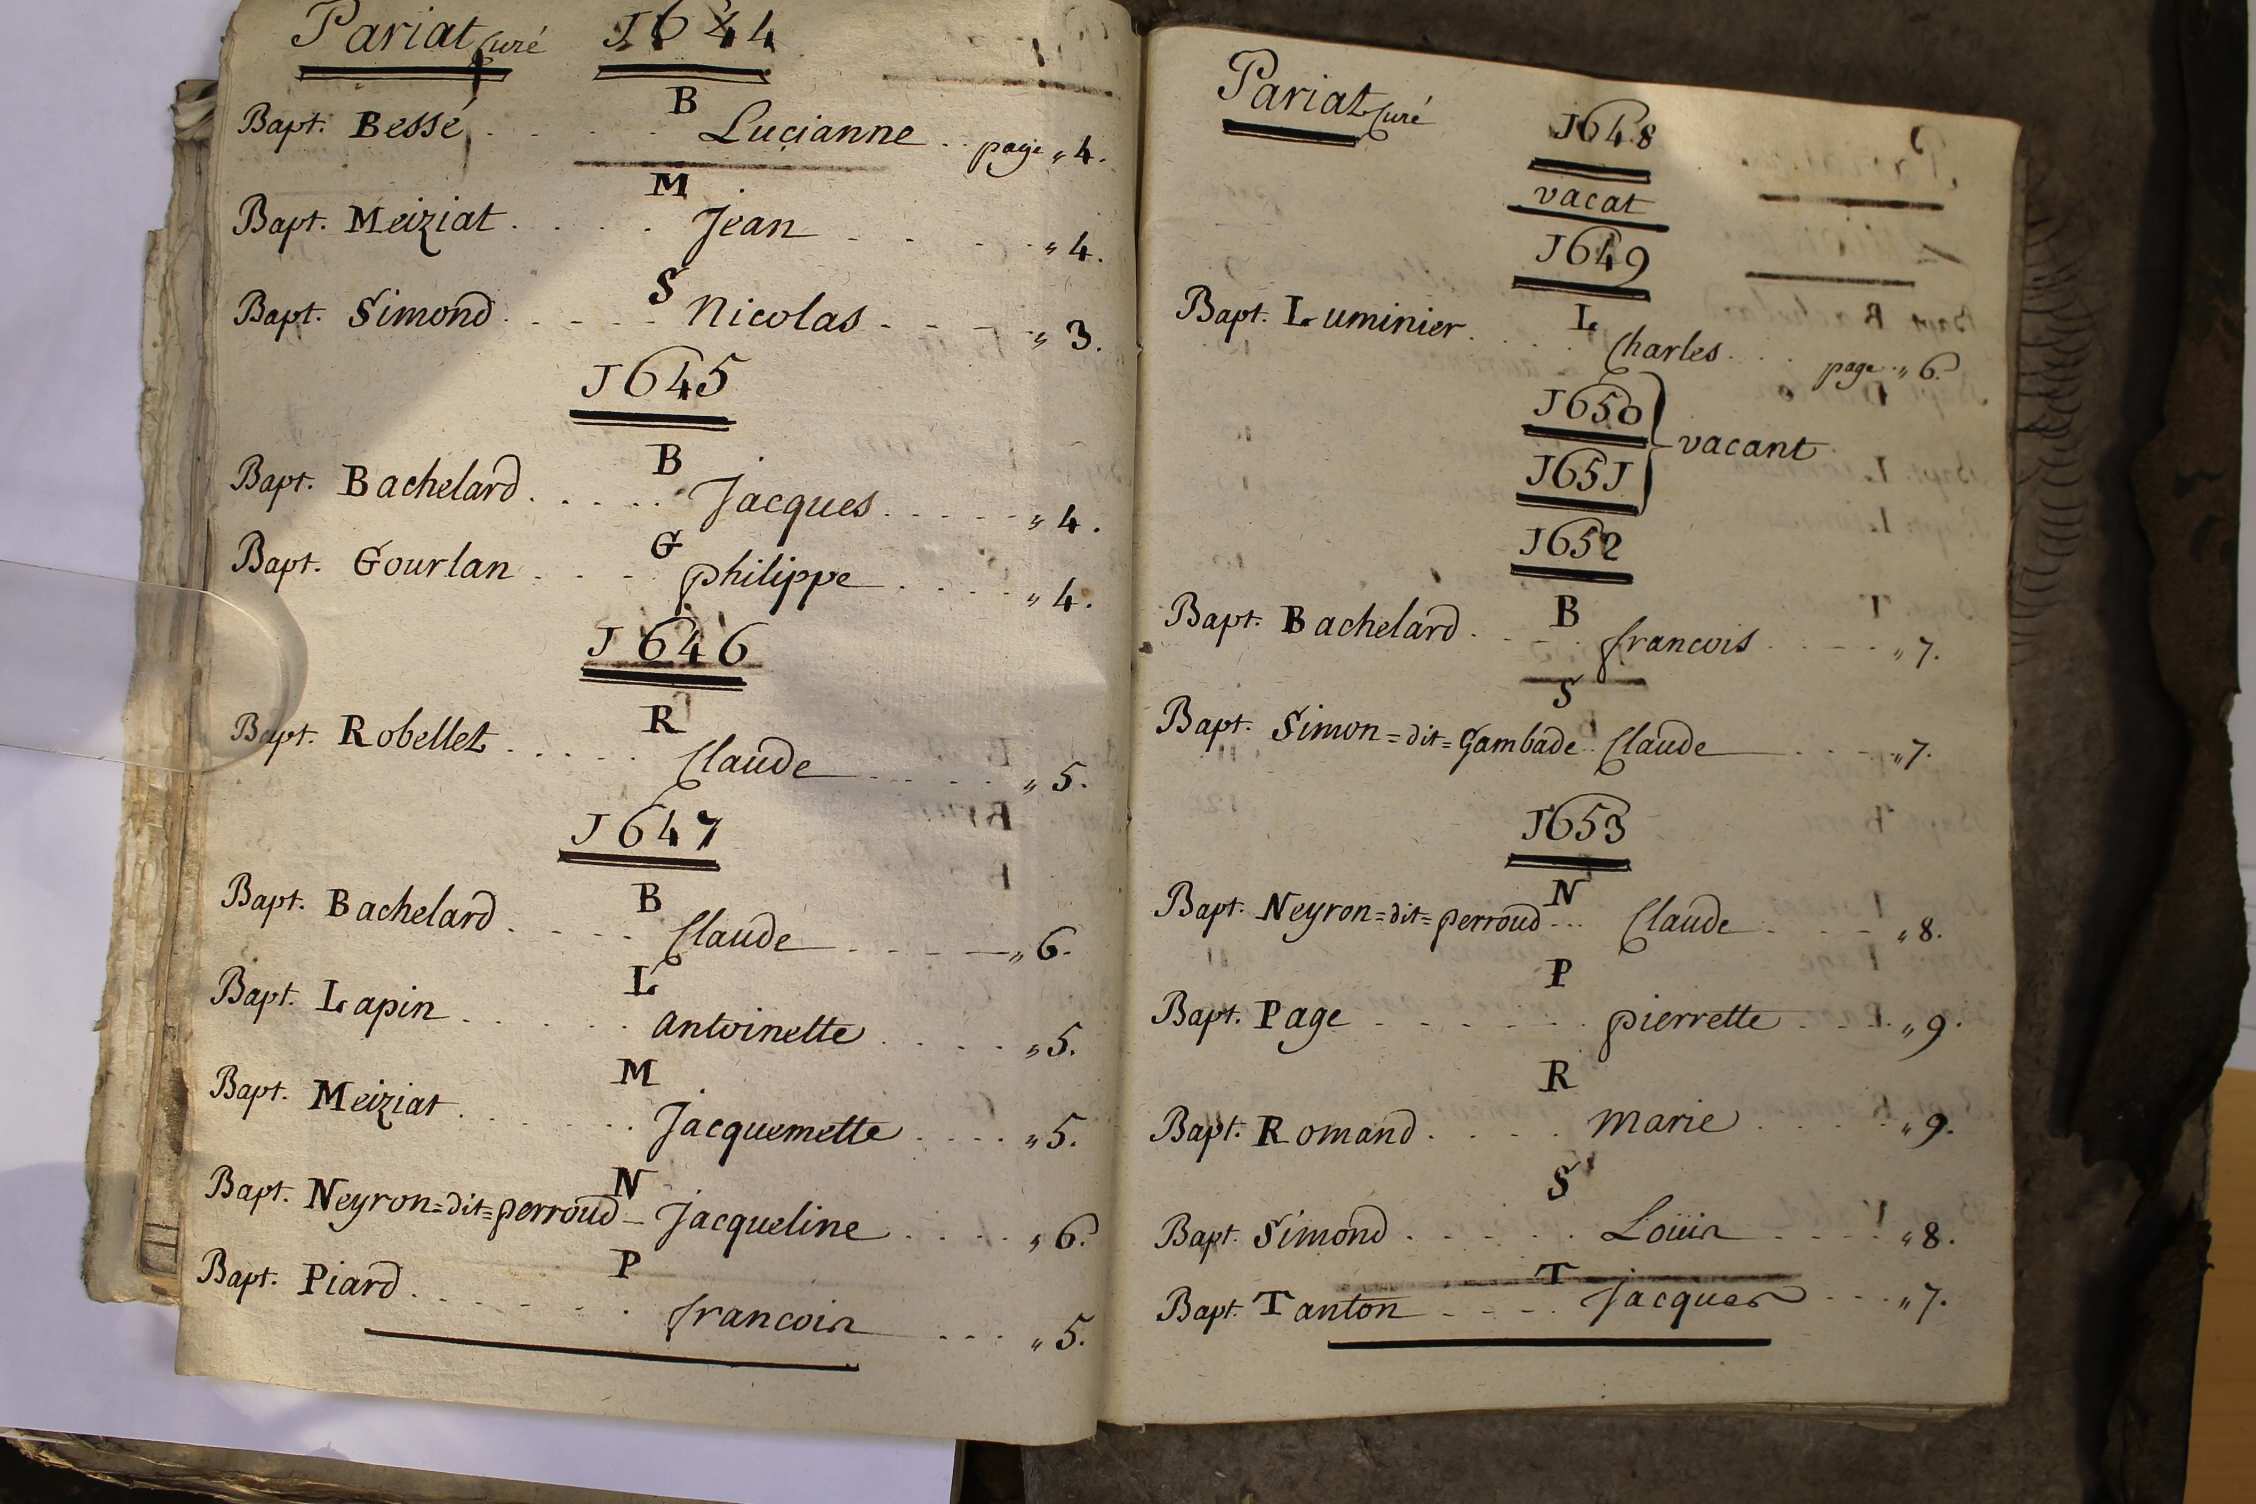 Pariat Curé J644
B
Bapt. Bessé . . . . . Lucianne . . page „ 4.
M
Bapt. Meiziat . . . . . Jean . . . . „ 4.
S
Bapt. Simond . . . . . Nicolas . . . . „ 3.
J645
B
Bapt. Bachelard . . . . . Jacques . . . . . „ 4.
G
Bapt. Gourlan . . . . philippe . . . . . „ 4.
J646
R
Bapt. Robellet . . . . . Claude . . . . . „ 5.
J647
B
Bapt. Bachelard . . . . . Claude . . . . „ 6.
L
Bapt. Lapin . . . . . . antoinette . . . . „ 5.
M
Bapt. Meiziat . . . . . . Jacquemette . . . . „ 5.
N
Bapt. Neyron=dit=perroud – Jacqueline . . . . „ 6.
P
Bapt. Piard . . . . . . . francois . . . „ 5.
Pariat Curé
J648
vacat
J649
L
Bapt. Luminier . . . . . Charles . . . . page „ 6.
J650
vacant
J65J
J652
B
Bapt. Bachelard . . . . . francois . . . . . „ 7.
S
Bapt. Simon=dit=Gambade . . Claude . . . . „ 7.
J653
N
Bapt. Neyron=dit=perroud . . . Claude . . . . „ 8.
P
Bapt. Page . . . . . . . pierrette . . . . „ 9.
R
Bapt. Romand . . . . . marie . . . . . „ 9.
S
Bapt. Simond . . . . . . Loüis . . . . „ 8.
T
Bapt. Tanton . . . . Jacques . . . „ 7.